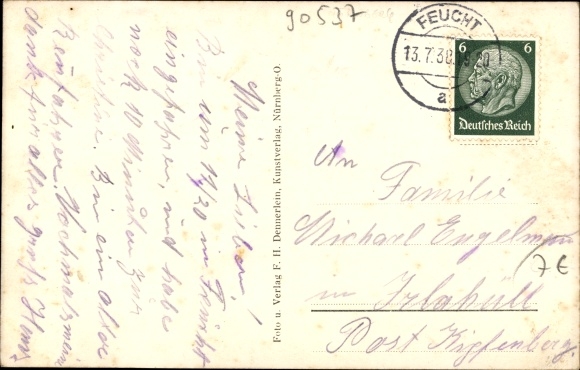 90537
FEUCHT
13.7.38
a
6 6
Deutsches Reich
Meine Lieben!
Bin um 17/20 in Feucht
angefahren, und habe
noch 10 Minuten zur
Bin ein alter
Nochmals mein
Dank für alles Grüße
Foto u. Verlag F. H. Dennerlein, Kunstverlag, Nürnberg-O.
An
Familie
Michael Engelmann
in Irlahüll
Post Kipfenberg.
7€